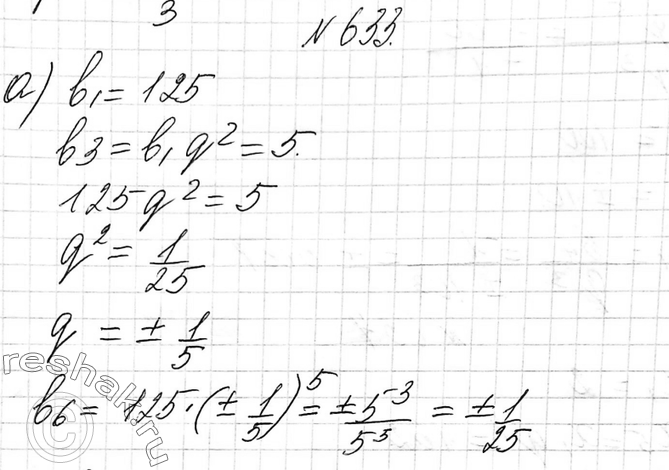 3
№633.
а) b₁ = 125
b3 = b₁ q² = 5.
125 q² = 5
q² = 1/25
q = ± 1/5
b₆ = 125 · (± 1/5)⁵ = ±5³/5⁵ = ± 1/25
© reshak.ru